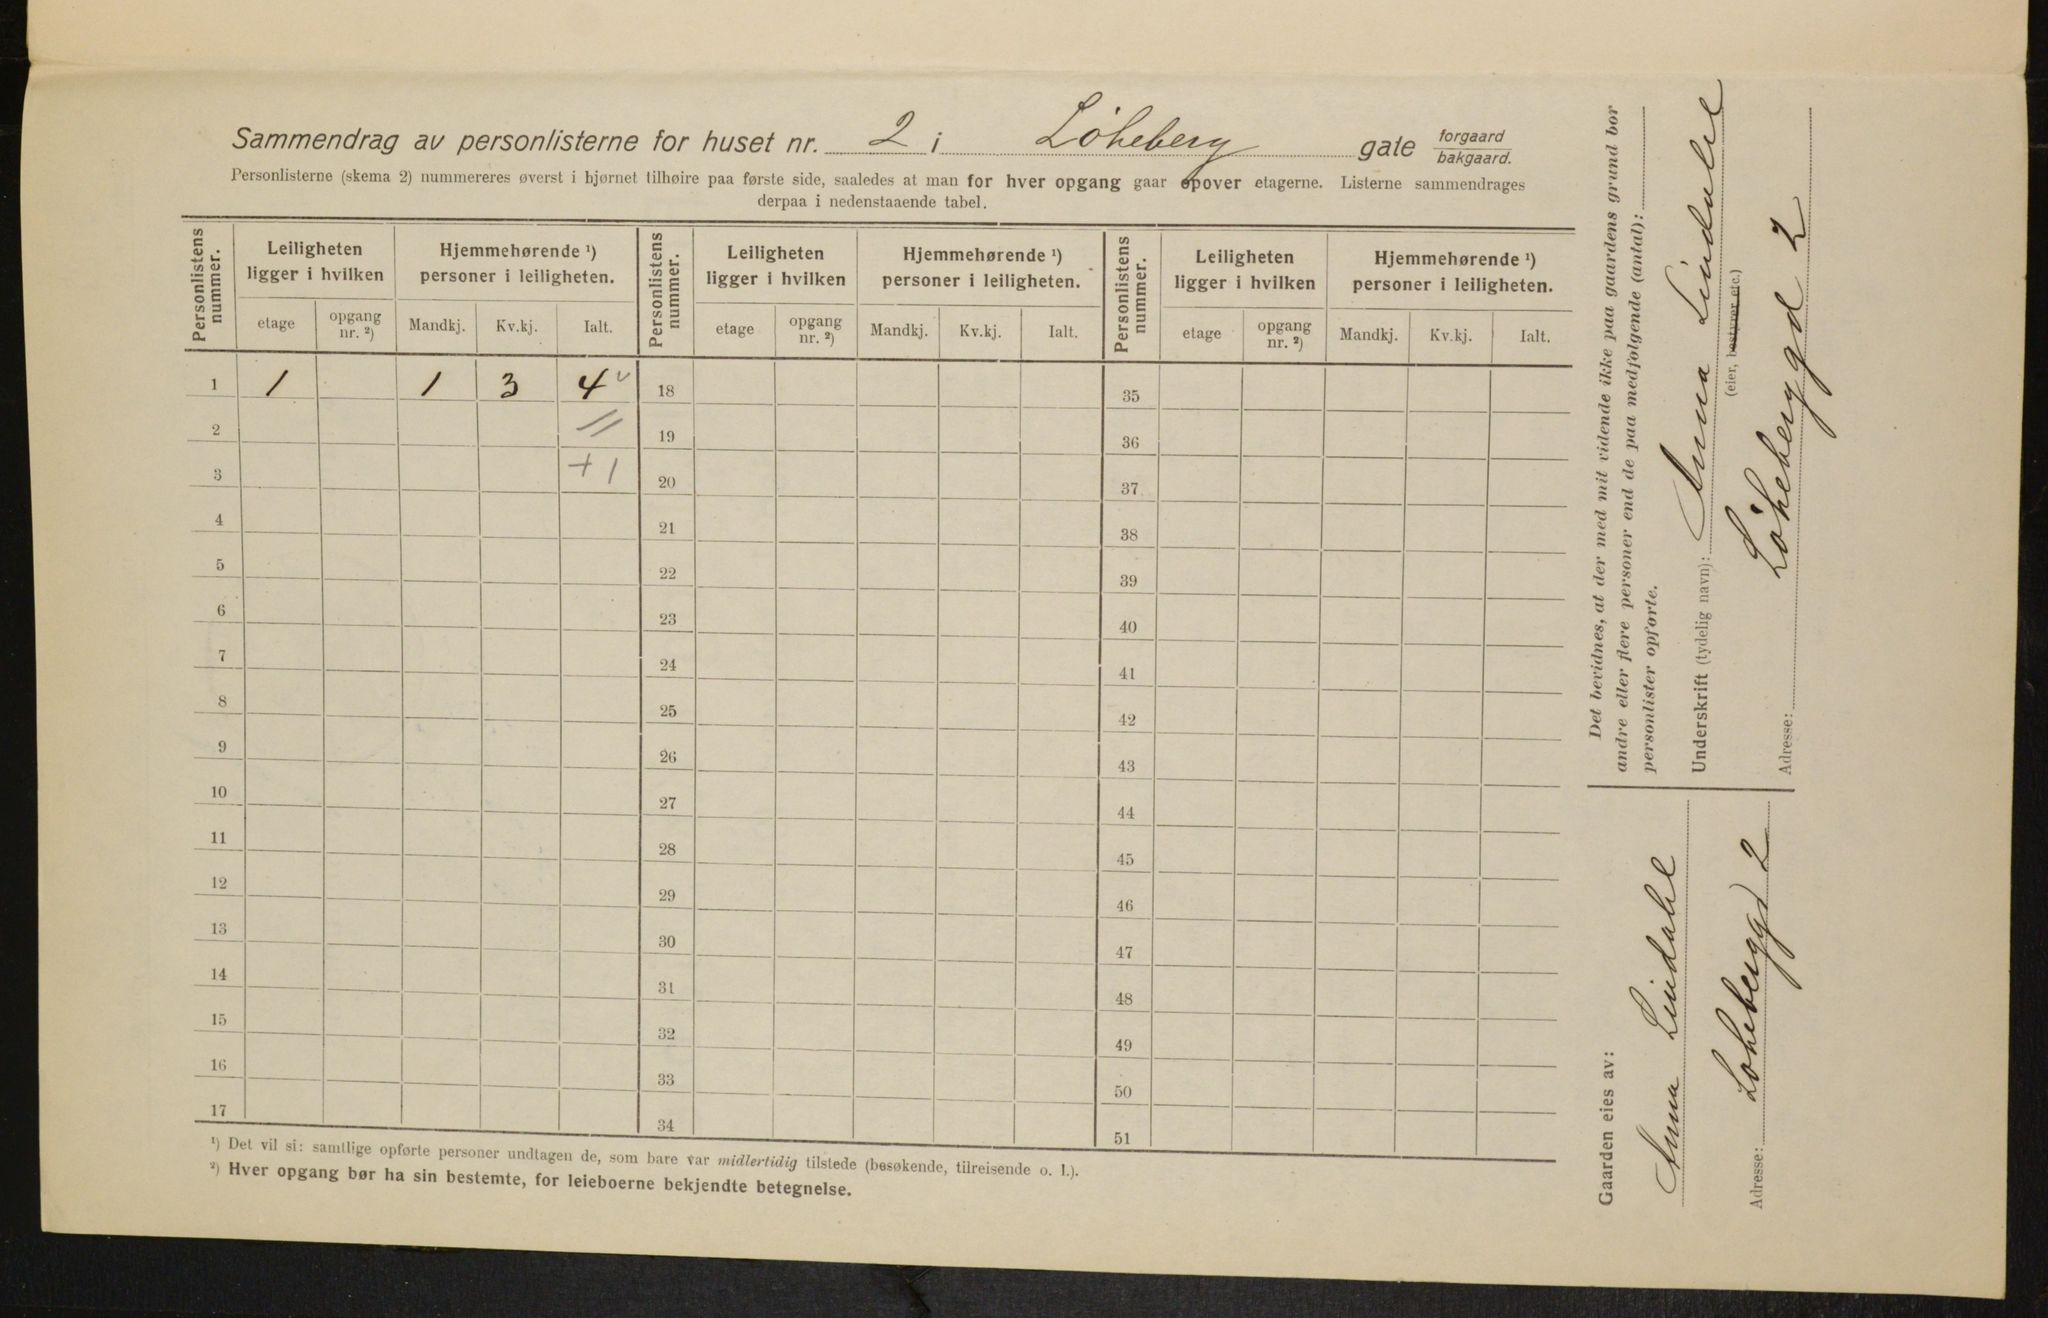 Sammendrag av personlisterne for huset nr. 2 i Løkeberg gate forgaard bakgaard.
Personlisterne (skema 2) nummereres øverst i hjørnet tilhøire paa første side, saaledes at man for hver opgang gaar opover etagerne. Listerne sammendrages
derpaa i nedenstaaende tabel.
Personlistens nummer. Leiligheten ligger i hvilken Hjemmehørende ¹) personer i leiligheten. Personlistens nummer. Leiligheten ligger i hvilken Hjemmehørende ¹) personer i leiligheten. Personlistens nummer. Leiligheten ligger i hvilken Hjemmehørende ¹) personer i leiligheten.
etage opgang nr. ²) Mandkj. Kv.kj. Ialt. etage opgang nr. ²) Mandkj. Kv.kj. Ialt. etage opgang nr. ²) Mandkj. Kv.kj. Ialt.
1 1 1 3 4 v 18 35
2 // 19 36
3 +1 20 37
4 21 38
5 22 39
6 23 40
7 24 41
8 25 42
9 26 43
10 27 44
11 28 45
12 29 46
13 30 47
14 31 48
15 32 49
16 33 50
17 34 51
¹) Det vil si: samtlige opførte personer undtagen de, som bare var midlertidig tilstede (besøkende, tilreisende o. l.).
²) Hver opgang bør ha sin bestemte, for leieboerne bekjendte betegnelse.
Det bevidnes, at der med mit vidende ikke paa gaardens grund bor
andre eller flere personer end de paa medfølgende (antal):
personlister opførte.
Underskrift (tydelig navn): Anna Lindahl
(eier, bestyrer etc.)
Løkeberggd 2
Adresse:
Gaarden eies av:
Anna Lindahl
Adresse: Løkeberggd 2